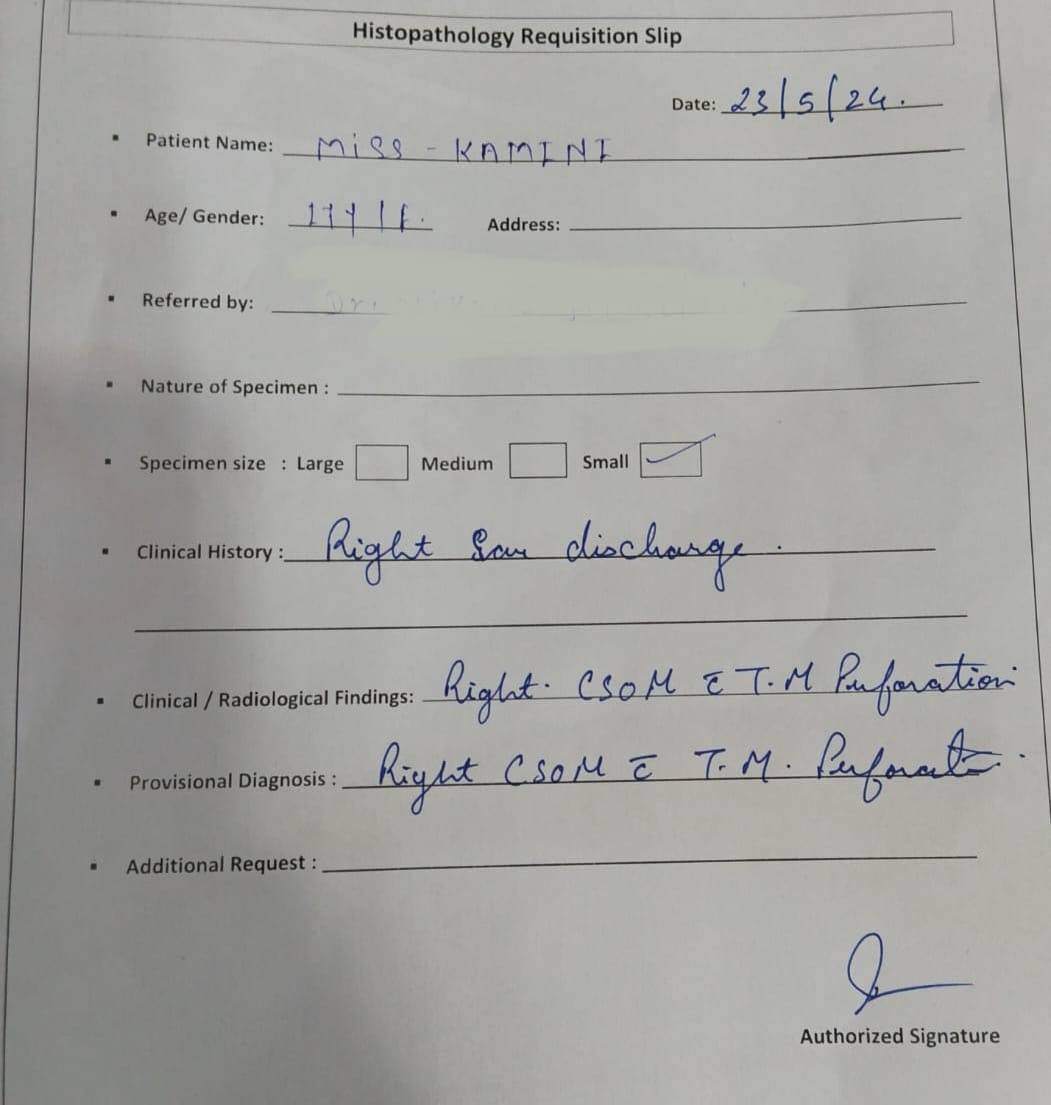 Histopathology Requisition Slip
Date: 23/5/24.
▪ Patient Name: Miss - KAMINI
▪ Age/ Gender: 17y/f. Address:
▪ Referred by: Dr.
▪ Nature of Specimen :
▪ Specimen size : Large Medium Small ✓
▪ Clinical History : Right Ear discharge.
▪ Clinical / Radiological Findings: Right. CSOM c̄ T.M Perforation
▪ Provisional Diagnosis : Right CSOM c̄ T.M. Perforation.
▪ Additional Request :
Authorized Signature